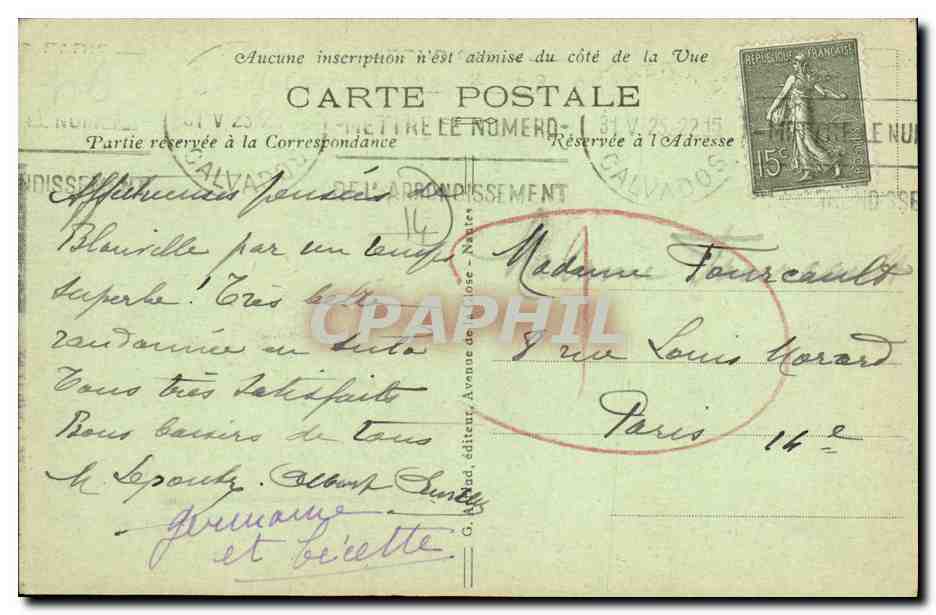 Aucune inscription n'est admise du côté de la Vue
CARTE POSTALE
Partie réservée à la Correspondance
Réservée à l'Adresse
RÉPUBLIQUE FRANÇAISE
15c
POSTES
31 V 23
CALVADOS
METTRE LE NUMERO
DE L'ARRONDISSEMENT
31 V 23 22 15
CALVADOS
METTRE LE NUM
14
Affectueuses pensées
Blonville par un temps
superbe ! Très belle
randonnée en auto
Tous très satisfaits
Bons baisers de tous
M Albert
germaine
et bécette
Nantes
G. éditeur, Avenue de la Close - Nantes
Madame Fourcault
8 rue Louis Morard
Paris 14e
CPAPHIL